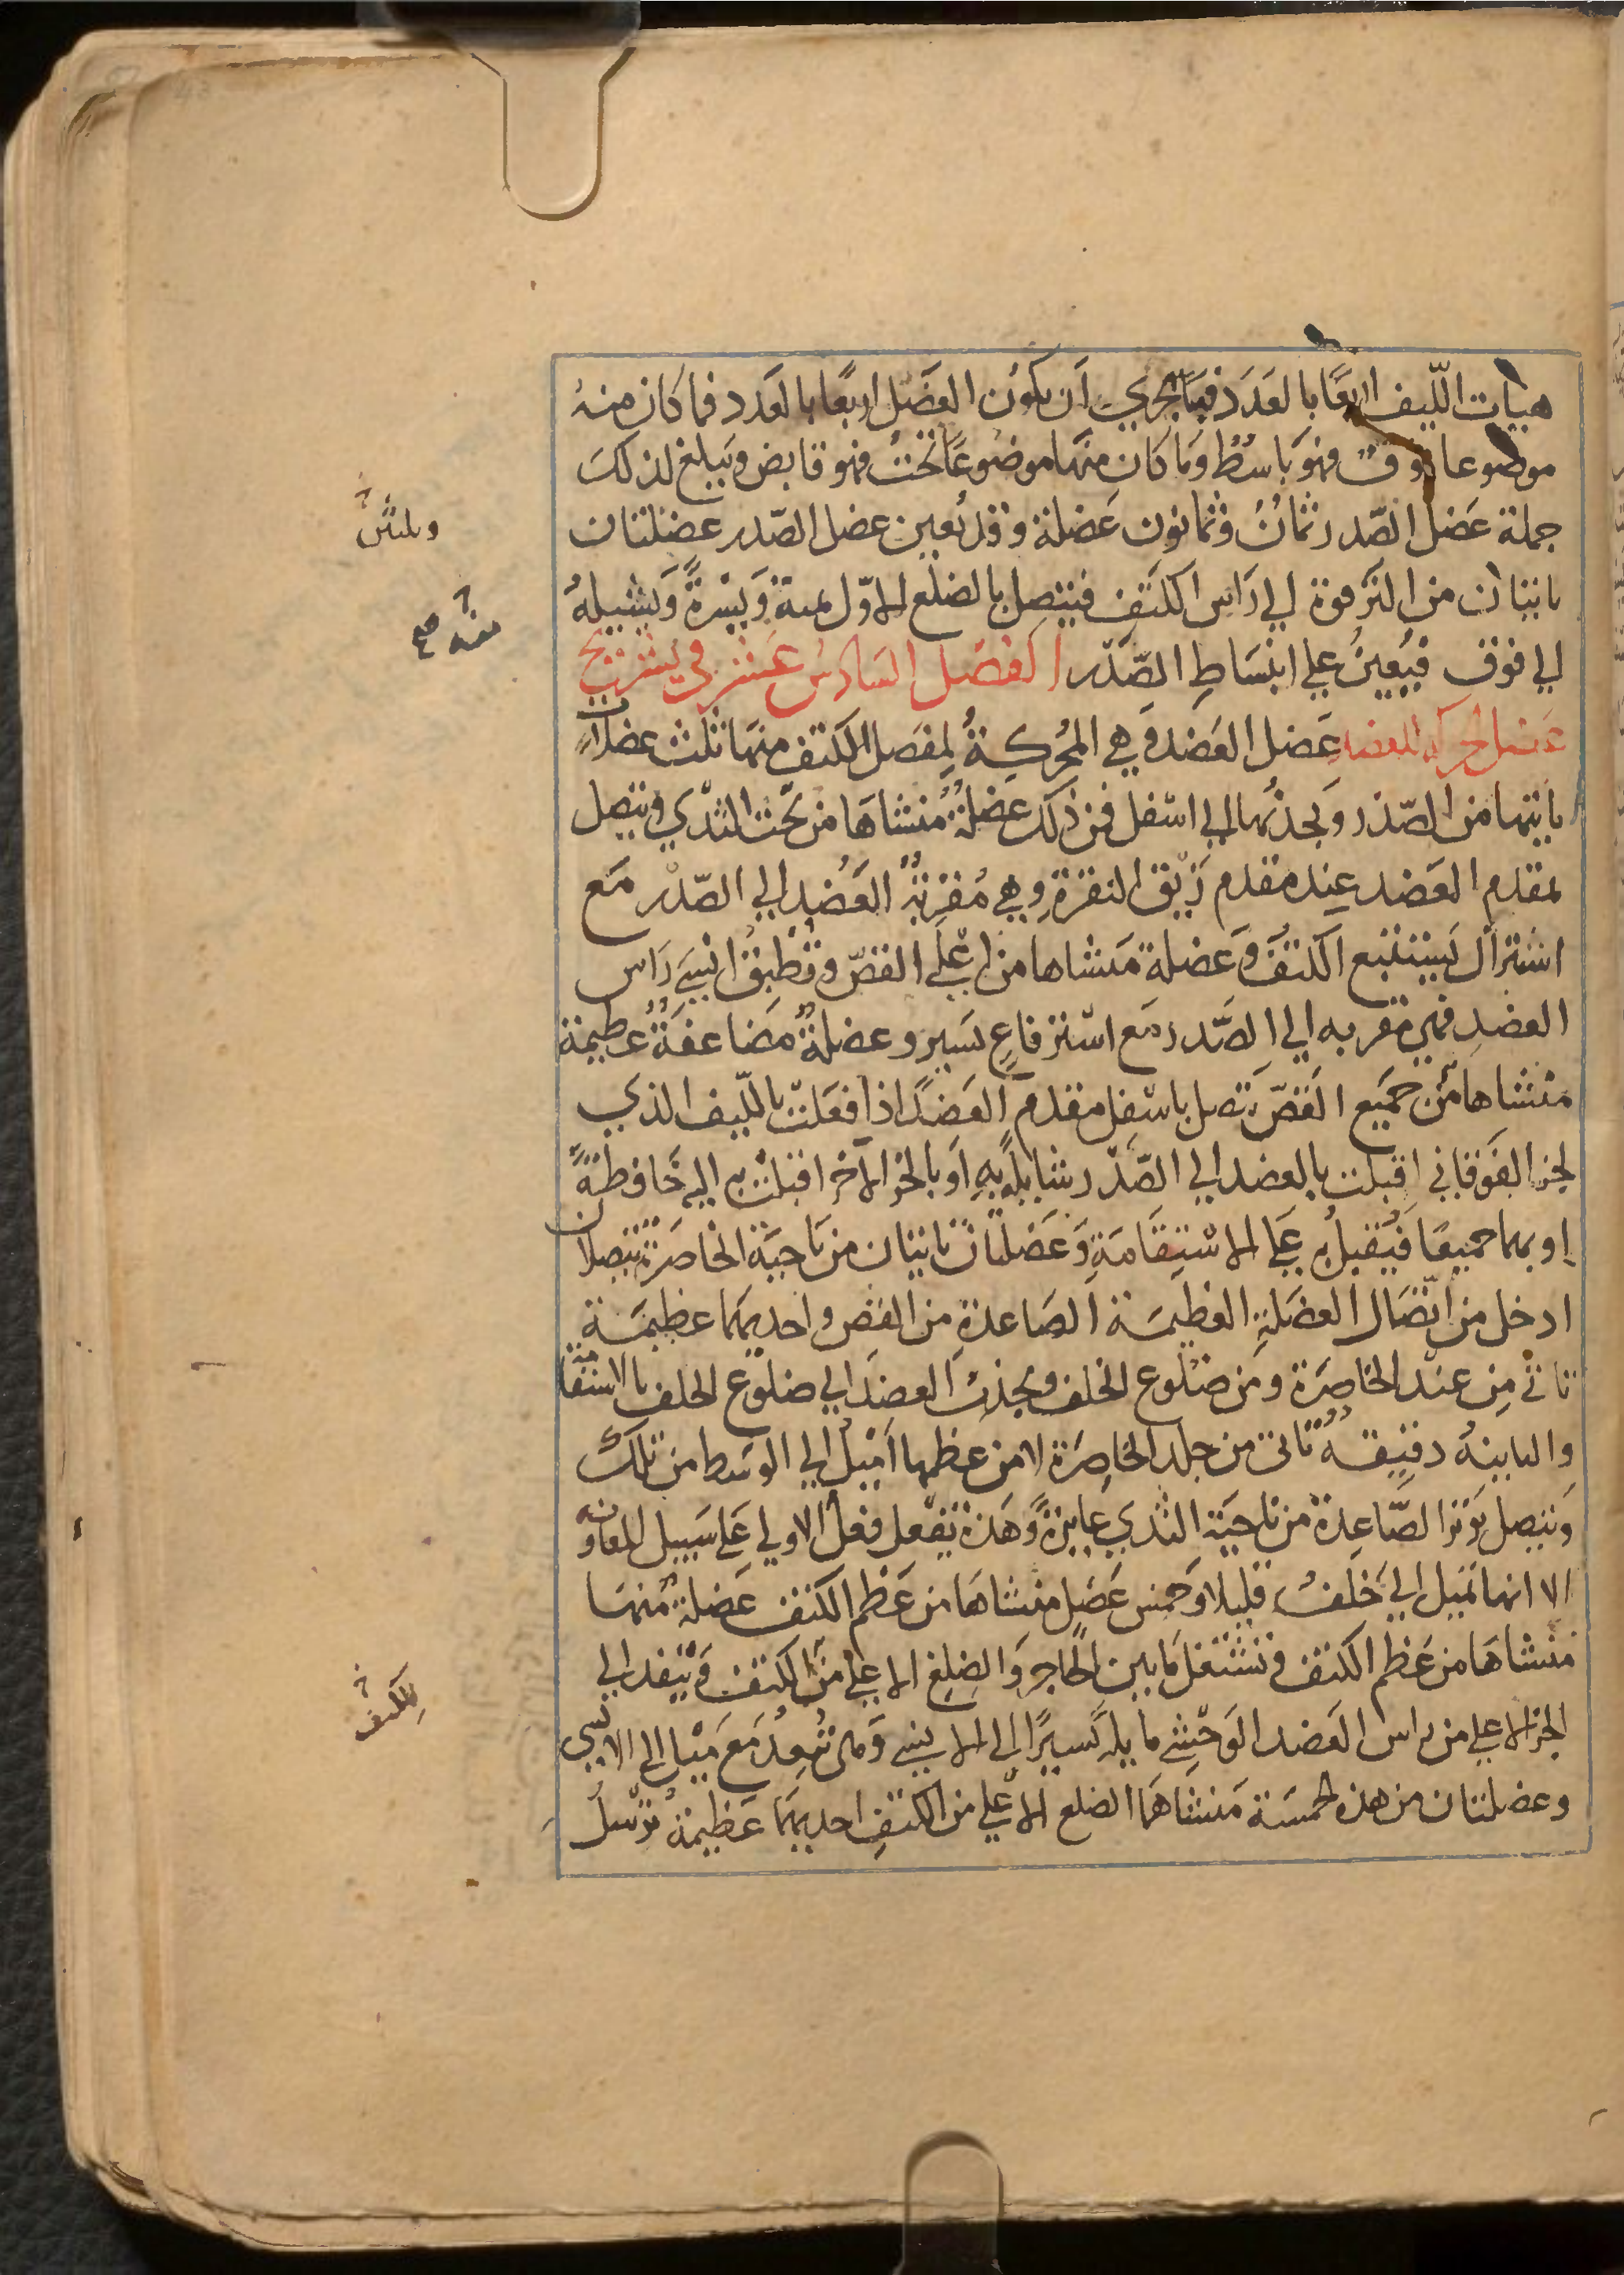 هيات اللّيف اربعًا بالعَدَد فبالحري ان يكون العضل اربعًا بالعدد فما كان منهُ
موضوعا فوق فهو باسُطٌ وما كان منها موضوعًا تحتُ فهو قابض ويبلغ لذلك
جملة عَضل الصّدر ثمانٌ وثمانون عَضلة وقد تُعين عضل الصّدر عضلتان
ياتيان من الترقوة الي رَاس الكتف فيتصِل بالضلع الاوّل يمنة ويَسْرةً وَيشيلهُ
الي فوق فيُعينُ علي انبسَاطِ الصّدر الفصل السَادسُ عَشر في تشريح
عضل حركة العضد عَضل العَضد وهي المُحركةُ لمفصَل الكتف منها ثلث عضلات
ياتيها من الصّدر ويجذبُها الي اسْفل فمن ذلك عضلةٌ منشاهَا من تحْت الثدْي وتتصل
بمقدم العَضد عِند مقدم زيق النقرةِ وهي مُقرّبةُ العَضُدِ الي الصّدر مَع
استزال يَستتبع الكتفَ وَعَضلة مَنشاها من اعْلي القصّ وتُطيف انْسيَ رَاس
العضدِ فهي مقربه الي الصَّدر مَع استرفاعٍ يَسير وعضلةٌ مضَاعفَةٌ عظيمة
مَنْشاها من جميع القَصّ تتصل باسْفل مقدم العَضدَ اذا فعَلتْ بالليف الذي
لجزا الفَوقاني اقبلت بالعضد الي الصّدر شايلهً بهِ اوَ بالجز الاخر اقبلتْ به اليه خَافِظةً
او بهما جميعًا فيُقبلُ به علي الاسْتِقَامَةِ وَعَضلتان تاتيان من نَاحيَة الخاصَرة تتصلان
ادخل من اتّصَال العضَلةِ العظيمَة الصَاعدةِ من القص واحديهمَا عظيمَة
تاتي من عنْد الخاصِرَة ومن ضلوع الخلف وتجذب العضدَ الي ضلوع الخلف بالاستقامة
والثانيهُ دقيقهٌ تاتي من جلد الخاصِرة لا من عظمها اَمْيلُ الي الوسَط من تلك
وَتتصل بوَتر الصّاعِدة من نَاحيَة الثدي غايرةً وهَذه تفْعل فعل الاولي عَلي سَبيل المعاونه
الا انها تميل الي خَلفُ قليلا وَخمس عَضل مَنشاهَا من عَظم الكتف عَضلة منها
مَنشاهَا من عَظم الكتف وتشْتغل مَا بين الحاجِز وَالضلع الاعلي من الكتف وَتنفد الي
الجز الاعلي من راس العَضد الوَحْشي مايلةً يَسيرًا الي الانسي وهي تُبعدُ مَع مَيْل الي الانسي
وعضلتان من هذه الخمسَة مَنشاهمَا الضلع الاعلي من الكتفِ احديهمَا عَظيمة تُرسلُ
للكتف